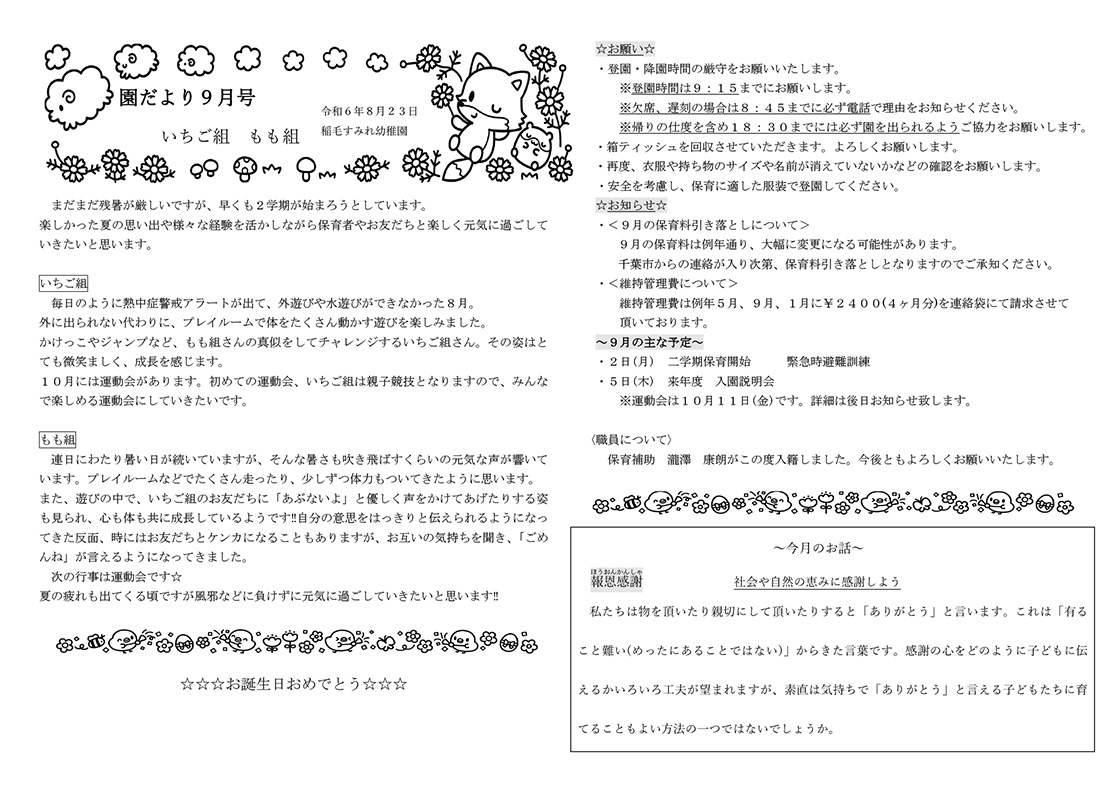 園だより９月号
いちご組　もも組
令和６年８月２３日
稲毛すみれ幼稚園
まだまだ残暑が厳しいですが、早くも２学期が始まろうとしています。
楽しかった夏の思い出や様々な経験を活かしながら保育者やお友だちと楽しく元気に過ごして
いきたいと思います。
いちご組
毎日のように熱中症警戒アラートが出て、外遊びや水遊びができなかった８月。
外に出られない代わりに、プレイルームで体をたくさん動かす遊びを楽しみました。
かけっこやジャンプなど、もも組さんの真似をしてチャレンジするいちご組さん。その姿はと
ても微笑ましく、成長を感じます。
１０月には運動会があります。初めての運動会、いちご組は親子競技となりますので、みんな
で楽しめる運動会にしていきたいです。
もも組
連日にわたり暑い日が続いていますが、そんな暑さも吹き飛ばすくらいの元気な声が響いて
います。プレイルームなどでたくさん走ったり、少しずつ体力もついてきたように思います。
また、遊びの中で、いちご組のお友だちに「あぶないよ」と優しく声をかけてあげたりする姿
も見られ、心も体も共に成長しているようです‼自分の意思をはっきりと伝えられるようになっ
てきた反面、時にはお友だちとケンカになることもありますが、お互いの気持ちを聞き、「ごめ
んね」が言えるようになってきました。
次の行事は運動会です☆
夏の疲れも出てくる頃ですが風邪などに負けずに元気に過ごしていきたいと思います‼
☆☆☆お誕生日おめでとう☆☆☆
☆お願い☆
・登園・降園時間の厳守をお願いいたします。
※登園時間は９：１５までにお願いします。
※欠席、遅刻の場合は８：４５までに必ず電話で理由をお知らせください。
※帰りの仕度を含め１８：３０までには必ず園を出られるようご協力をお願いします。
・箱ティッシュを回収させていただきます。よろしくお願いします。
・再度、衣服や持ち物のサイズや名前が消えていないかなどの確認をお願いします。
・安全を考慮し、保育に適した服装で登園してください。
☆お知らせ☆
・＜９月の保育料引き落としについて＞
９月の保育料は例年通り、大幅に変更になる可能性があります。
千葉市からの連絡が入り次第、保育料引き落としとなりますのでご承知ください。
・＜維持管理費について＞
維持管理費は例年５月、９月、１月に￥２４００(４ヶ月分)を連絡袋にて請求させて
頂いております。
～９月の主な予定～
・２日(月)　二学期保育開始　　　緊急時避難訓練
・５日(木)　来年度　入園説明会
※運動会は１０月１１日(金)です。詳細は後日お知らせ致します。
〈職員について〉
保育補助　瀧澤　康朗がこの度入籍しました。今後ともよろしくお願いいたします。
～今月のお話～
ほうおんかんしゃ
報恩感謝　　社会や自然の恵みに感謝しよう
私たちは物を頂いたり親切にして頂いたりすると「ありがとう」と言います。これは「有る
こと難い(めったにあることではない)」からきた言葉です。感謝の心をどのように子どもに伝
えるかいろいろ工夫が望まれますが、素直は気持ちで「ありがとう」と言える子どもたちに育
てることもよい方法の一つではないでしょうか。